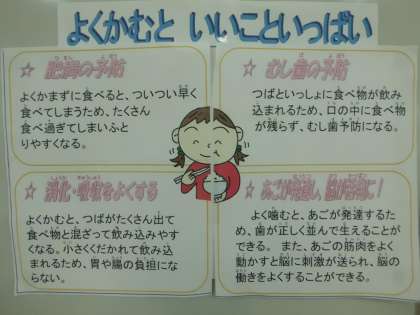 よくかむと いいこといっぱい
☆ 肥満の予防
よくかまずに食べると、ついつい早く
食べてしまうため、たくさん
食べ過ぎてしまいふと
りやすくなる。
☆ むし歯の予防
つばといっしょに食べ物が飲み
込まれるため、口の中に食べ物
が残らず、むし歯予防になる。
☆ 消化・吸収をよくする
よくかむと、つばがたくさん出て
食べ物と混ざって飲み込みやす
くなる。小さくくだかれて飲み込
まれるため、胃や腸の負担にな
らない。
☆ あごが発達し、脳が活発に！
よく噛むと、あごが発達するた
め、歯が正しく並んで生えることが
できる。 また、あごの筋肉をよく
動かすと脳に刺激が送られ、脳の
働きをよくすることができる。